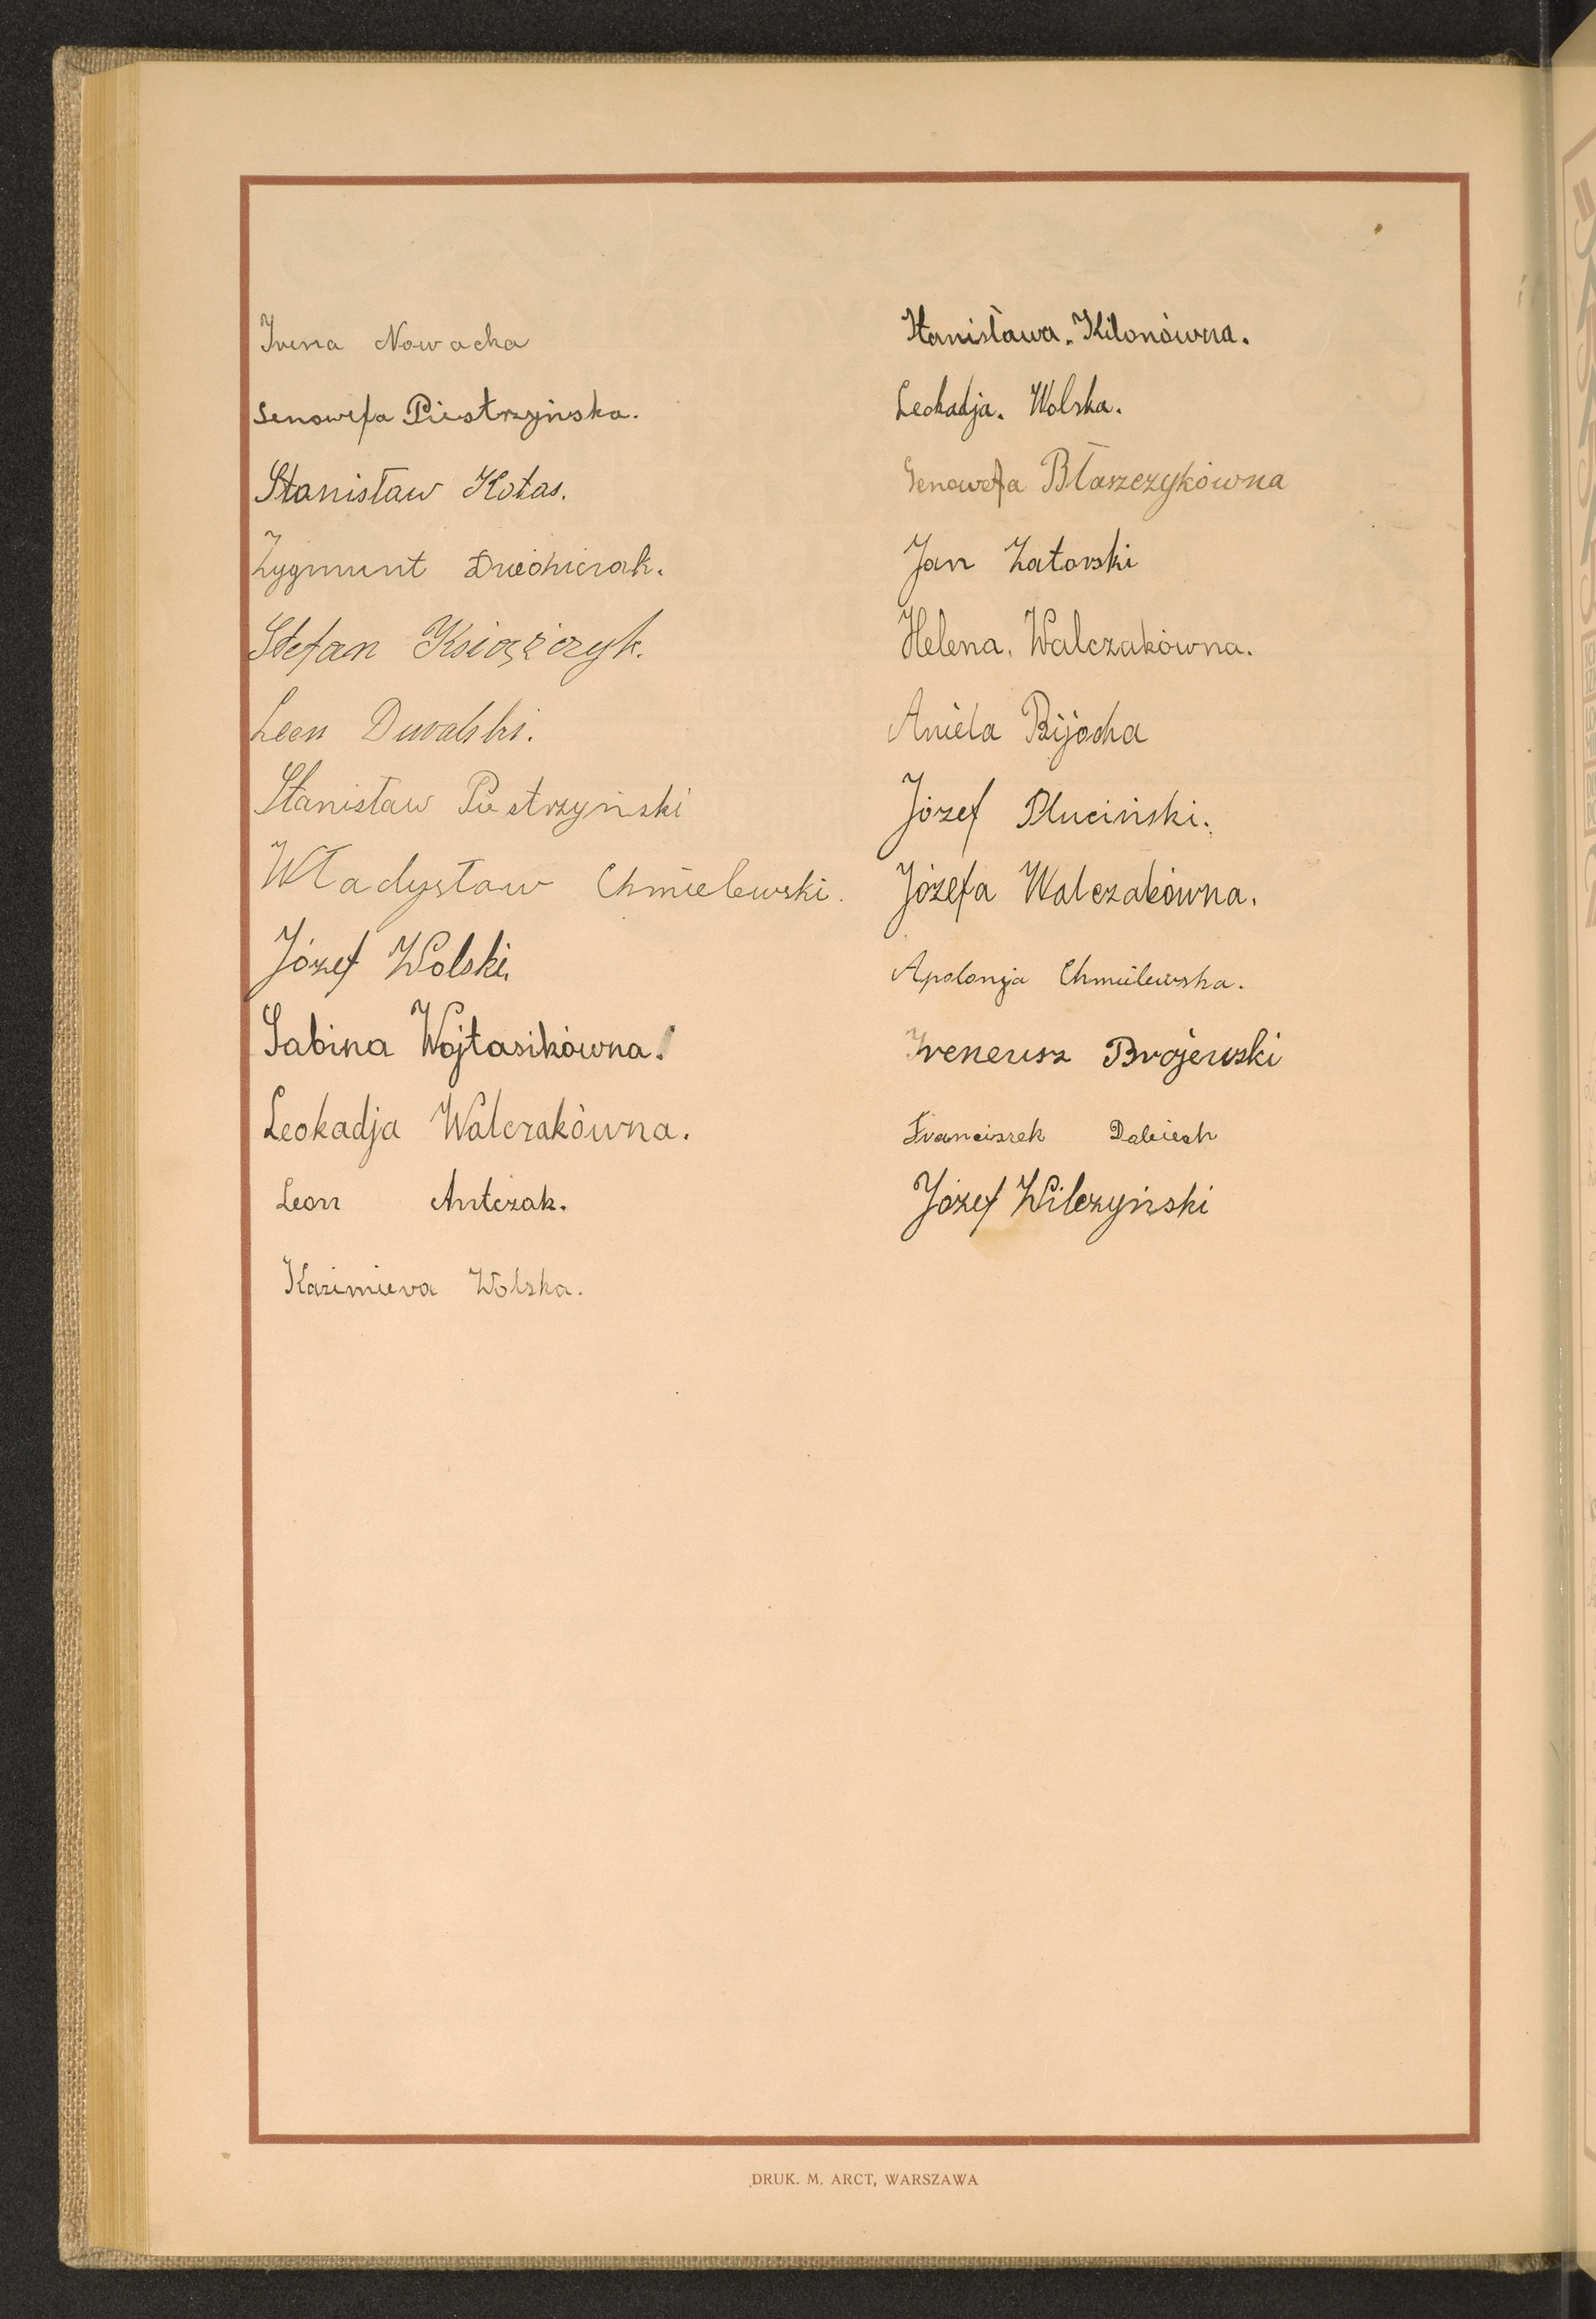 Irena Nowacka
Genowefa Piestrzyńska.
Stanisław Kotas.
Zygmunt
Stefan Książczyk.
Leon Duwalski.
Stanisław Piestrzyński
Władysław Chmielewski.
Józef Wolski.
Sabina Wojtasikówna.
Leokadja Walczakówna.
Leon Antczak.
Kazimiera Wolska.
Stanisława. Kilonówna.
Leokadja. Wolska.
Genowefa Błaszczykówna
Jan Zatorski
Helena. Walczakówna.
Aniela Bijocha
Józef Pluciński.
Józefa Walczakówna.
Apolonja Chmielewska.
Ireneusz Brojewski
Franciszek
Józef Wilczyński
DRUK. M. ARCT, WARSZAWA